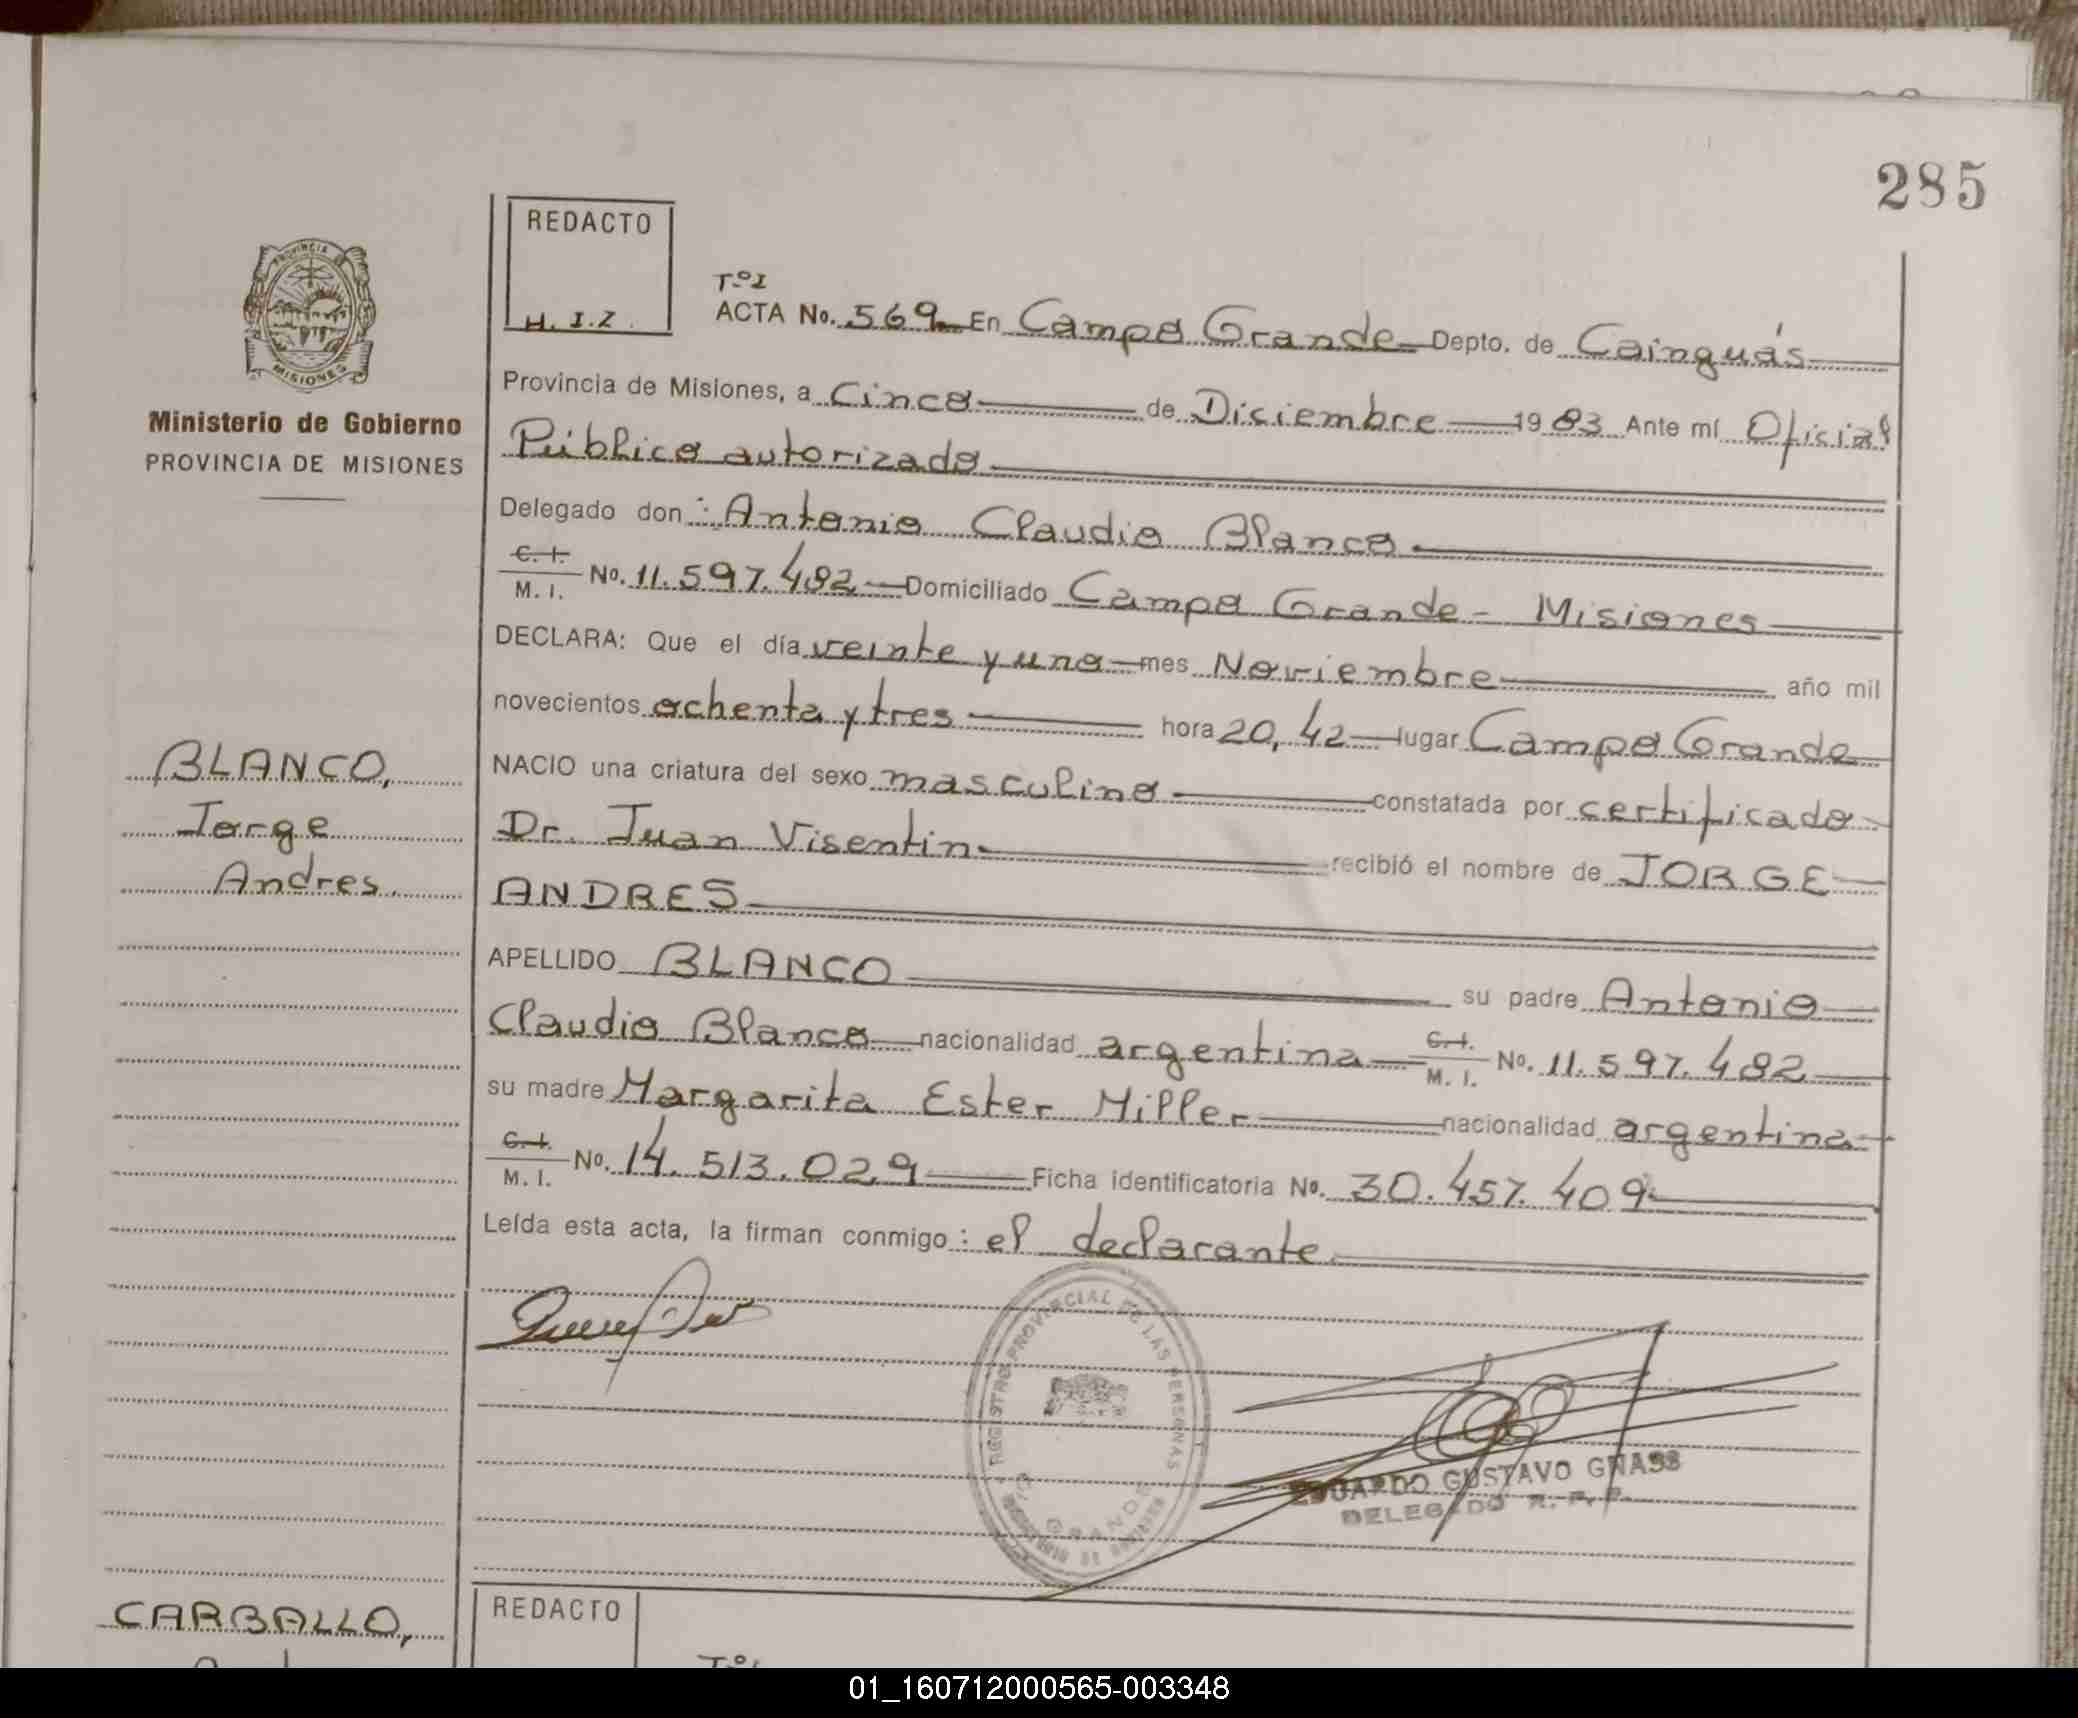 285
REDACTO
H. I. Z.
Tº I
ACTA No. 569 En Campo Grande Depto. de Cainguás
Provincia de Misiones, a Cinco de Diciembre 1983 Ante mí Oficial
Público autorizado
Delegado don: Antonio Claudio Blanco
C. I.
M. I. No. 11.597.482 Domiciliado Campo Grande - Misiones
DECLARA: Que el día veinte y uno mes Noviembre año mil
novecientos ochenta y tres hora 20,42 lugar Campo Grande
NACIO una criatura del sexo masculino constatada por certificado
Dr. Juan Visentin recibió el nombre de JORGE
ANDRES
APELLIDO BLANCO su padre Antonio
Claudio Blanco nacionalidad argentina C. I. M. I. No. 11.597.482
su madre Margarita Ester Miller nacionalidad argentina
C. I.
M. I. No. 14.513.029 Ficha identificatoria No. 30.457.409
Leída esta acta, la firman conmigo: el declarante
PROVINCIA
MISIONES
Ministerio de Gobierno
PROVINCIA DE MISIONES
BLANCO,
Jorge
Andres.
REGISTRO PROVINCIAL DE LAS PERSONAS
GRANDE
EDUARDO GUSTAVO GNASS
DELEGADO R. P. P.
CARBALLO,
REDACTO
Tº I
01_160712000565-003348